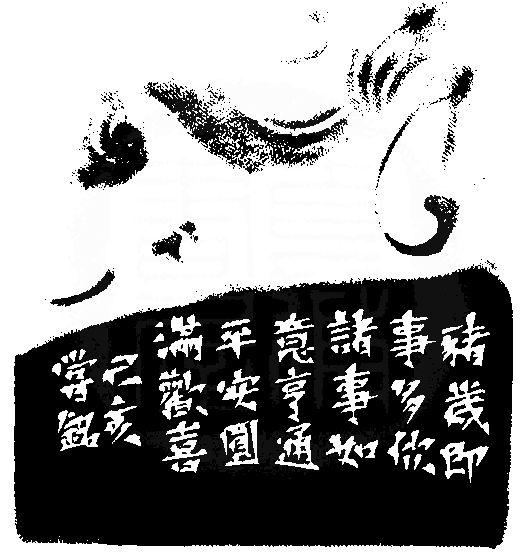 豬歲即
事多
諸事如
意亨通
平安圓
滿歡喜
己亥
銘